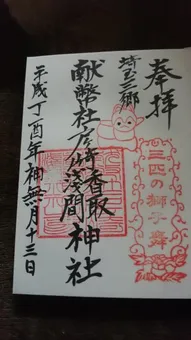 奉拝
埼玉三郷
三匹の獅子舞
献幣社彦倉香取浅間神社
平成丁酉年神無月十三日